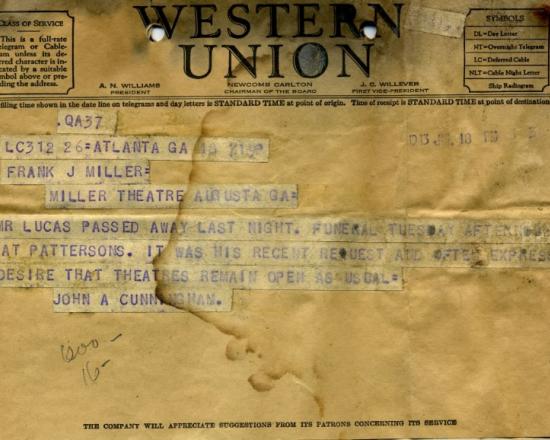 CLASS OF SERVICE
This is a full-rate
Telegram or Cable-
gram unless its de-
ferred character is in-
dicated by a suitable
symbol above or pre-
ceding the address.
WESTERN
UNION
A. N. WILLIAMS
PRESIDENT
NEWCOMB CARLTON
CHAIRMAN OF THE BOARD
J. C. WILLEVER
FIRST VICE-PRESIDENT
SYMBOLS
DL=Day Letter
NT=Overnight Telegram
LC=Deferred Cable
NLT=Cable Night Letter
Ship Radiogram
filing time shown in the date line on telegrams and day letters is STANDARD TIME at point of origin. Time of receipt is STANDARD TIME at point of destination
.QA37
LC312 26=ATLANTA GA 18
FRANK J MILLER=
MILLER THEATRE AUGUSTA GA=
MR LUCAS PASSED AWAY LAST NIGHT. FUNERAL TUESDAY AFTERNOON
AT PATTERSONS. IT WAS HIS RECENT REQUEST AND OFTEN EXPRESS
DESIRE THAT THEATRES REMAIN OPEN AS USUAL=
JOHN A CUNNINGHAM.
600 -
16 -
THE COMPANY WILL APPRECIATE SUGGESTIONS FROM ITS PATRONS CONCERNING ITS SERVICE